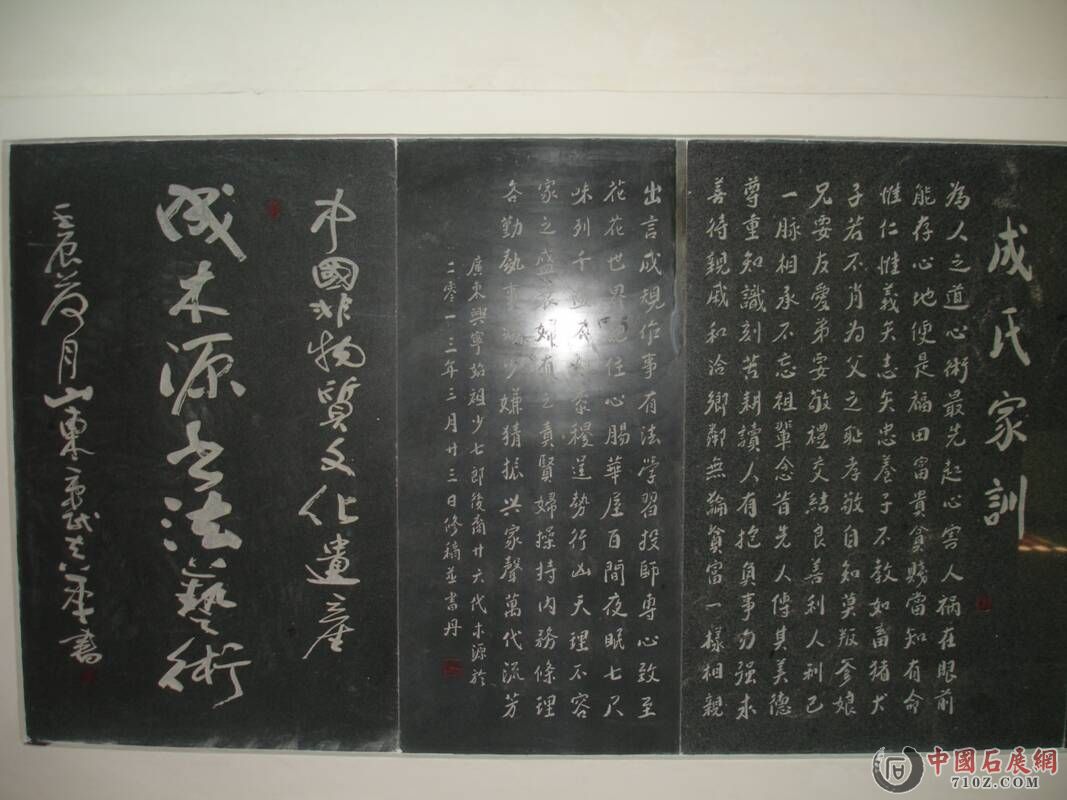 成氏家訓
為人之道心術最先起心害人禍在眼前
能存心地便是福田富貴貧賤當知有命
惟仁惟義矢志矢忠養子不教如畜猪犬
子若不肖为父之耻孝敬自知莫叛爹娘
兄要友愛弟要敬禮交結良善利人利己
一脉相承不忘祖輩念首先人傳其美德
尊重知識刻苦耕讀人有抱負事力强求
善待親戚和洽鄉鄰無論貧富一樣相親
出言成規作事有法学習投師專心致至
花花世界 住心腸華屋百間夜眠七尺
味列千 逞勢行凶天理不容
家之盛衰婦有之責賢婦操持内務條理
各勤執事 少嫌猜振兴家聲萬代流芳
廣東興寧始祖少七郎後裔廿六代木源於
二零一三年三月廿三日修稿並書丹
中國非物質文化遺産
成木源书法藝術
壬辰 月山東 書
中國石展網
710Z.COM